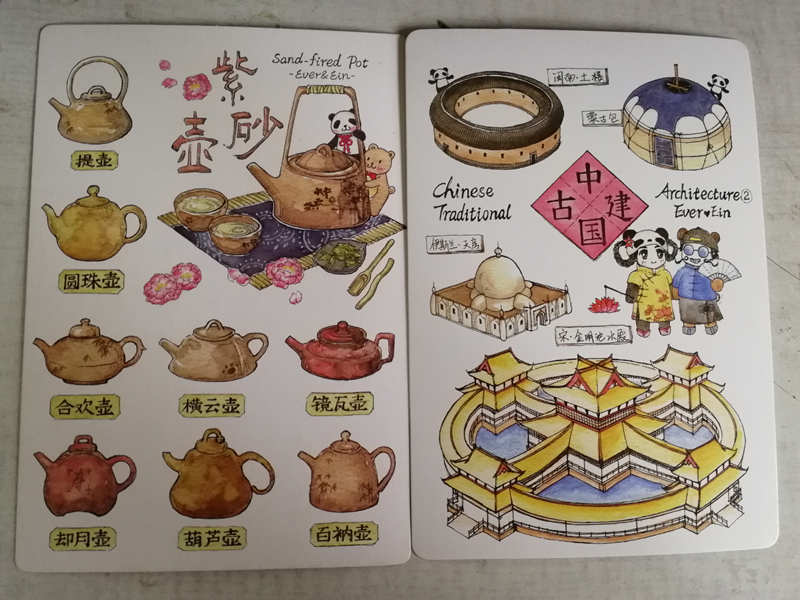 紫砂壶
Sand-fired Pot
-Ever&Ein-
提壶
圆珠壶
合欢壶
横云壶
镜瓦壶
却月壶
葫芦壶
百衲壶
闽南·土楼
蒙古包
中国
古建
Chinese
Traditional
Architecture②
Ever♥Ein
伊斯兰·天房
宋·金明池水殿